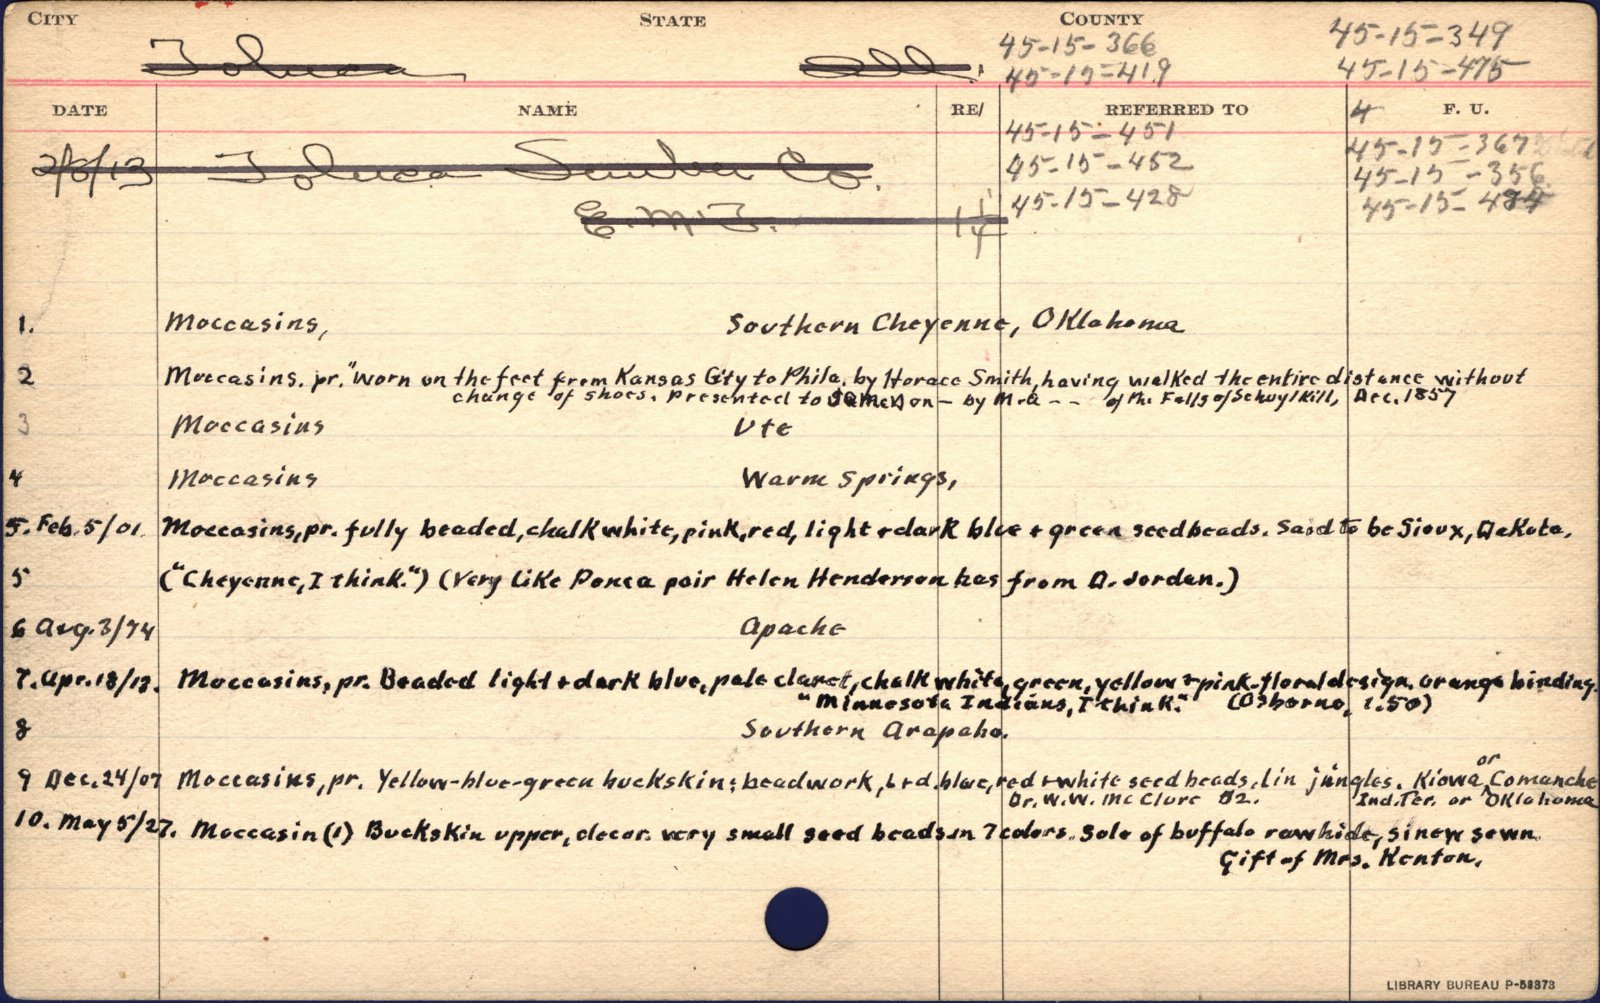 CITY STATE COUNTY
Toluca Ill.
45-15-366 45-15-349
45-15-419 45-15-475
DATE NAME RE/ REFERRED TO 4 F. U.
45-15-451
2/8/13 Toluca Lumber Co. 45-15-452 45-15-367
45-15-356
E. M. T. 14 45-15-428 45-15-484
1. Moccasins, Southern Cheyenne, Oklahoma
2 Moccasins. pr. "Worn on the feet from Kansas City to Phila. by Horace Smith, having walked the entire distance without
change of shoes. Presented to - by M.A - - of the Falls of Schuylkill, Dec. 1857
3 Moccasins Ute
4 Moccasins Warm Springs,
5. Feb. 5/01. Moccasins, pr. fully beaded, chalk white, pink, red, light + dark blue + green seedbeads. Said to be Sioux, Dakota.
5 ("Cheyenne, I think.") (Very like Ponca pair Helen Henderson has from D. Jordan.)
6 Aug. 3/74 Apache
7. Apr. 18/13. Moccasins, pr. Beaded light + dark blue, pale claret, chalk white, green, yellow + pink-floral design. orange binding.
"Minnesota Indians, I think." (Osborne, 1.50)
8 Southern Arapaho.
9 Dec. 24/07 Moccasins, pr. Yellow-blue-green buckskin; beadwork, l + d. blue, red + white seed beads. tin jingles. Kiowa or Comanche
Dr. W. W. McClure 02. Ind. Ter. or Oklahoma
10. May 5/27. Moccasin (1) Buckskin upper, decor. very small seed beads in 7 colors. Sole of buffalo rawhide, sinew sewn.
Gift of Mrs. Kenton.
LIBRARY BUREAU P-58873